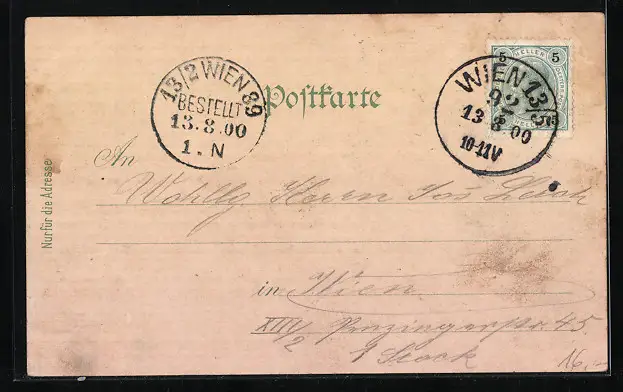 13/2 WIEN 89
BESTELLT
13.8.00
1.N
Postkarte
5 HELLER 5
WIEN 13/
92
13 8 00
10-11V
An
Wohlg. Herrn
in Wien
XIII/2 Penzingerstr. 45
1 Stock
Nur für die Adresse
16,-